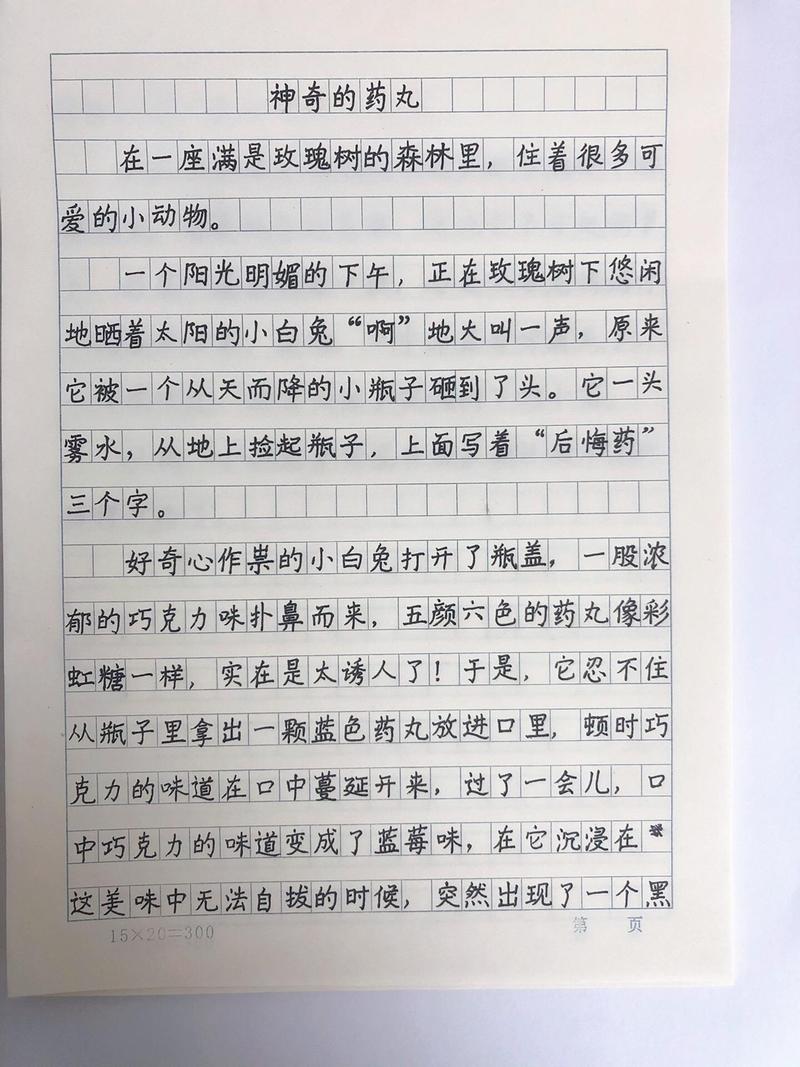 神奇的药丸
在一座满是玫瑰树的森林里，住着很多可
爱的小动物。
一个阳光明媚的下午，正在玫瑰树下悠闲
地晒着太阳的小白兔“啊”地大叫一声，原来
它被一个从天而降的小瓶子砸到了头。它一头
雾水，从地上捡起瓶子，上面写着“后悔药”
三个字。
好奇心作祟的小白兔打开了瓶盖，一股浓
郁的巧克力味扑鼻而来，五颜六色的药丸像彩
虹糖一样，实在是太诱人了！于是，它忍不住
从瓶子里拿出一颗蓝色药丸放进口里，顿时巧
克力的味道在口中蔓延开来，过了一会儿，口
中巧克力的味道变成了蓝莓味，在它沉浸在
这美味中无法自拔的时候，突然出现了一个黑
15×20=300 第 页